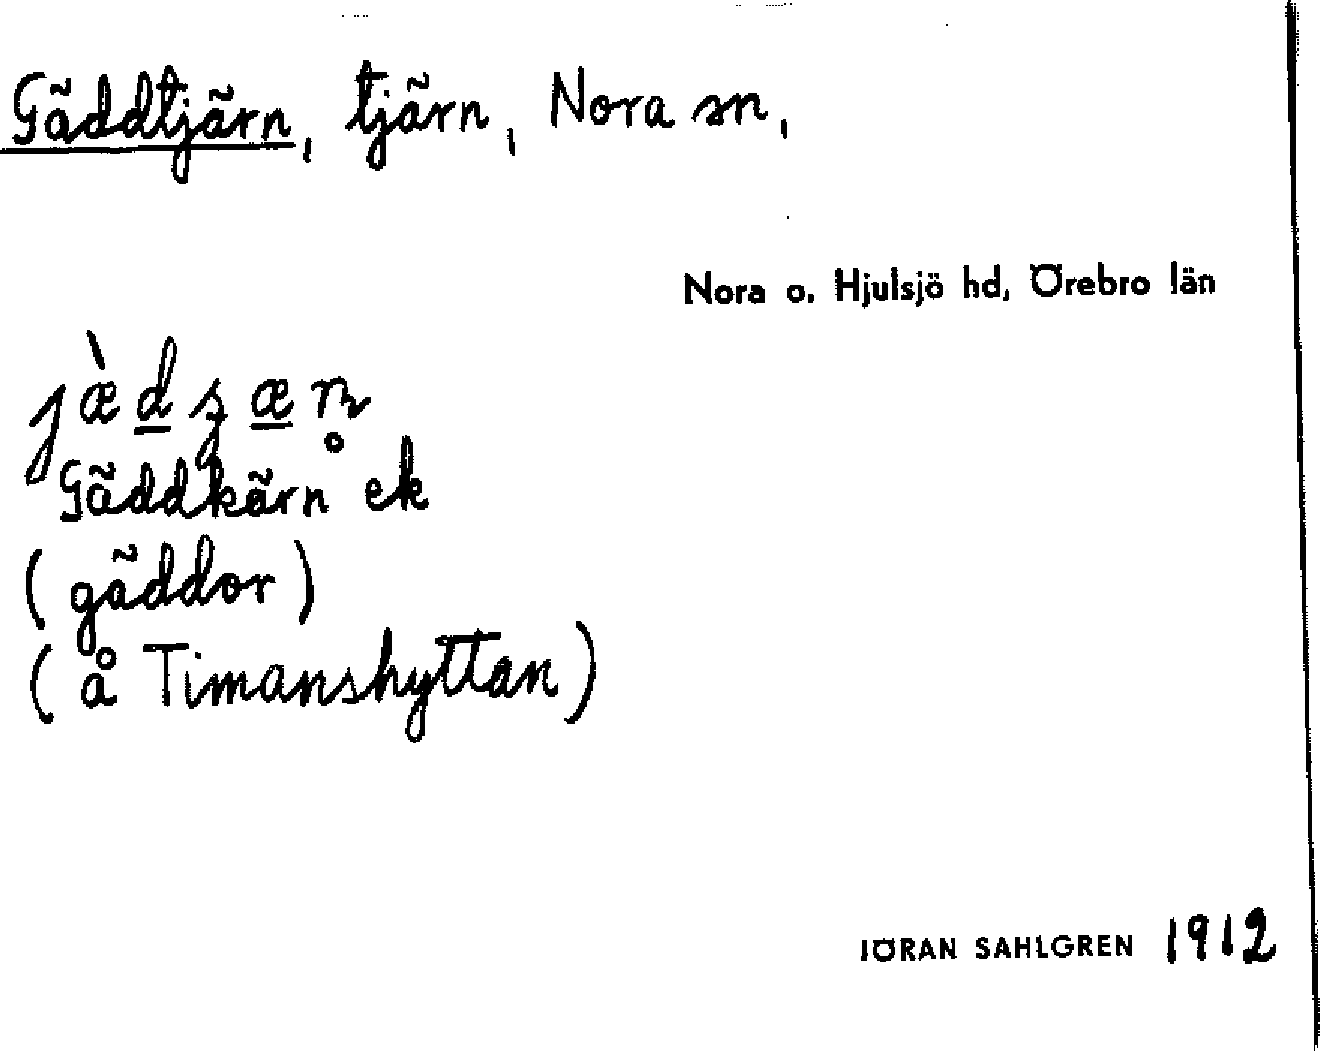 Gäddtjärn, tjärn, Nora sn,
Nora o. Hjulsjö hd, Örebro län
Gäddkärn ek
(gäddor)
(å Timanshyttan)
JÖRAN SAHLGREN 1912